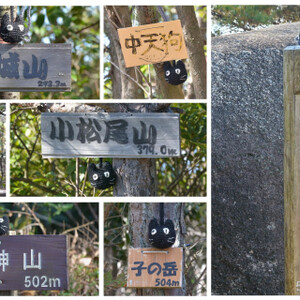 城山
中天狗
小松尾山
379.0m
神山
502m
子の岳
504m